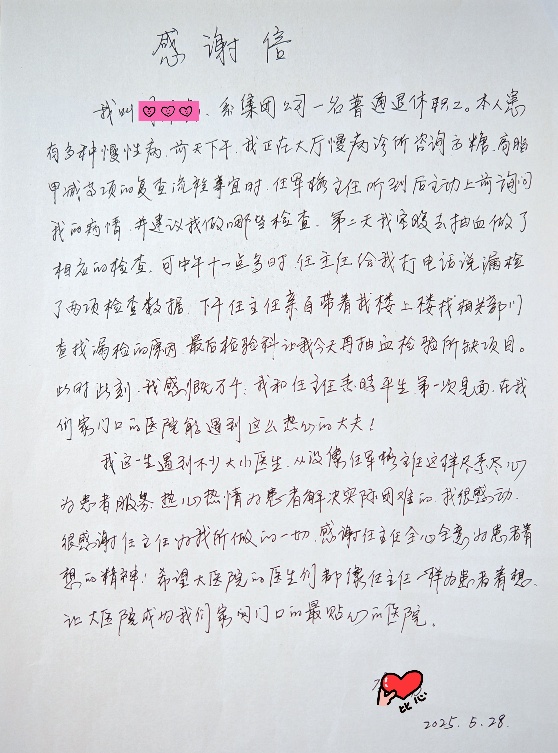 感谢信
我叫 系集团公司一名普通退休职工。本人患
有多种慢性病,前天下午,我正在大厅慢病诊所咨询高糖、高脂
甲减等项的复查流程事宜时,任军梅主任听到后主动上前询问
我的病情,并建议我做哪些检查。第二天我空腹去抽血做了
相应的检查,可中午十一点多时,任主任给我打电话说漏检
了两项检查数据,下午任主任亲自带着我楼上楼下找相关部门
查找漏检的原因,最后检验科让我今天再抽血检验所缺项目。
此时此刻,我感慨万千,我和任主任素昧平生,第一次见面,在我
们家门口的医院能遇到这么热心的大夫!
我这一生遇到不少大小医生,从没像任军梅主任这样尽手尽心
为患者服务,热心热情为患者解决实际困难的,我很感动,
很感谢任主任为我所做的一切,感谢任主任全心全意为患者着
想的精神!希望大医院的医生们都像任主任一样为患者着想,
让大医院成为我们家门口的最贴心的医院。
比心
2025.5.28.